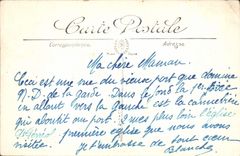 Carte Postale
Correspondance
Adresse
Ma chère Maman
Ceci est une vue du vieux port que domine
N.D. de la garde. Dans le fond la
en allant vers la gauche est la cannebière
qui aboutit au port. Vues plus loin l'église
première église que nous avons
visitée. Je t'embrasse de tout cœur
Blanche